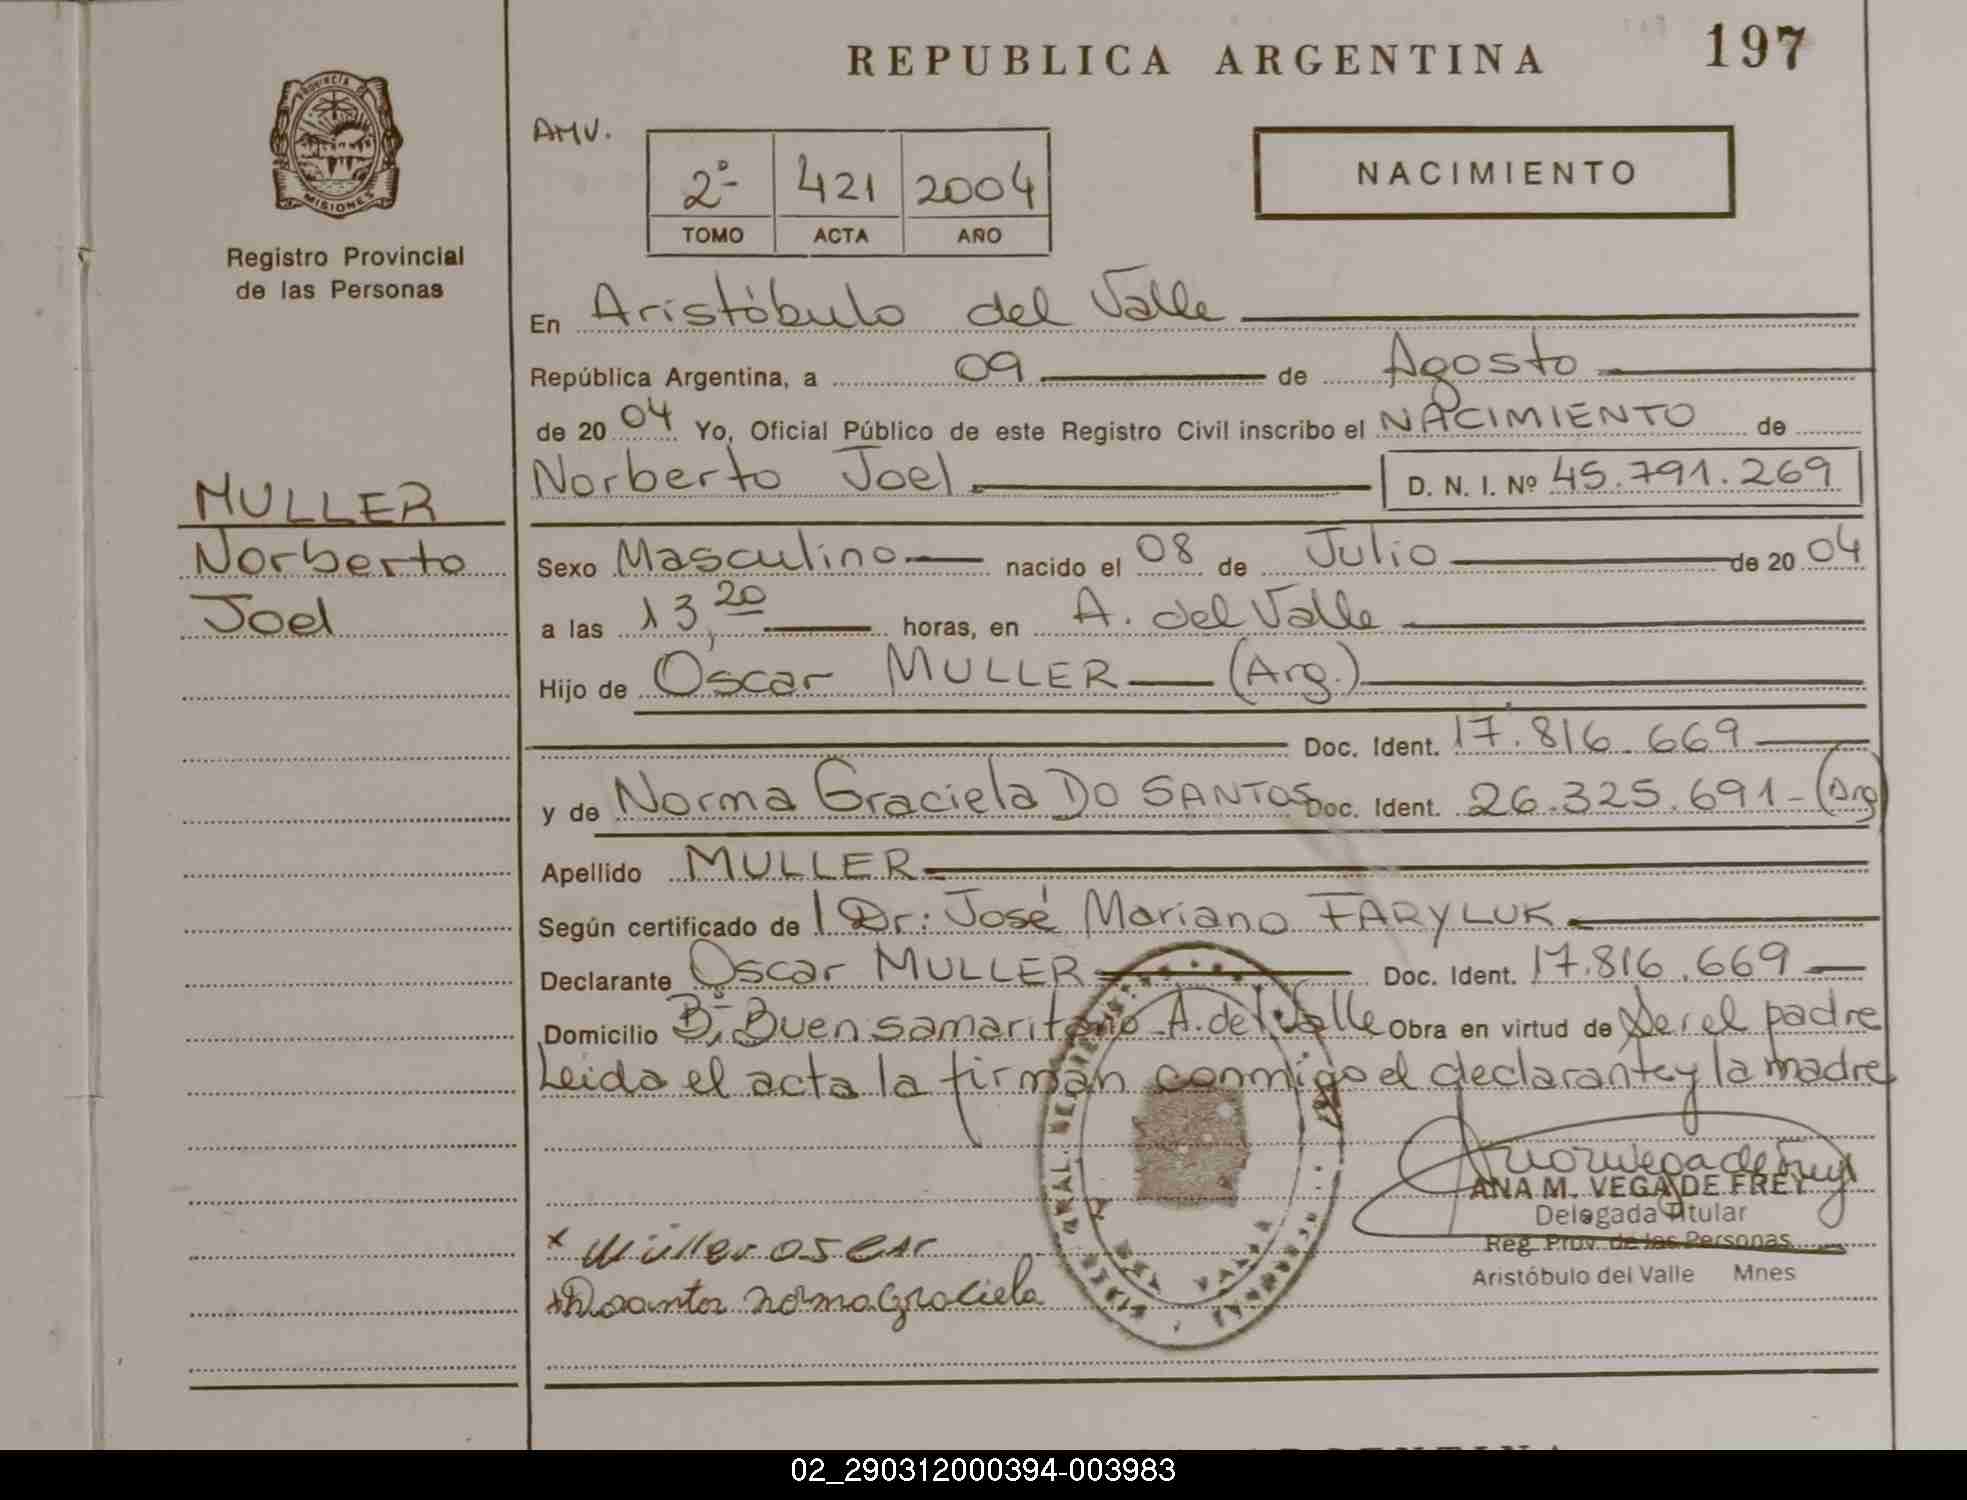 REPUBLICA ARGENTINA
197
PROVINCIA DE
MISIONES
Registro Provincial
de las Personas
AMV.
2º 421 2004
TOMO ACTA AÑO
NACIMIENTO
En Aristóbulo del Valle
República Argentina, a 09 de Agosto
de 20 04 Yo, Oficial Público de este Registro Civil inscribo el NACIMIENTO de
Norberto Joel D. N. I. Nº 45.791.269
MULLER
Norberto
Joel
Sexo Masculino nacido el 08 de Julio de 20 04
a las 13,20 horas, en A. del Valle
Hijo de Oscar MULLER (Arg.)
Doc. Ident. 17.816.669
y de Norma Graciela DO SANTOS Doc. Ident. 26.325.691- (Arg)
Apellido MULLER
Según certificado de l Dr: José Mariano FARYLUK
Declarante Oscar MULLER Doc. Ident. 17.816.669
Domicilio Bº, Buen samaritano A. del Valle Obra en virtud de Ser el padre
Leida el acta la firman conmigo el declarante y la madre
ANA M. VEGA DE FREY
Delegada Titular
Reg. Prov. de las Personas
Aristóbulo del Valle Mnes
x Müller oscar
x Dosantos norma Graciela
02_290312000394-003983